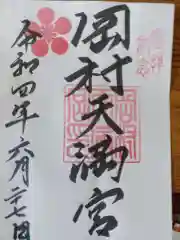 奉拝
岡村天満宮
令和四年六月二十七日